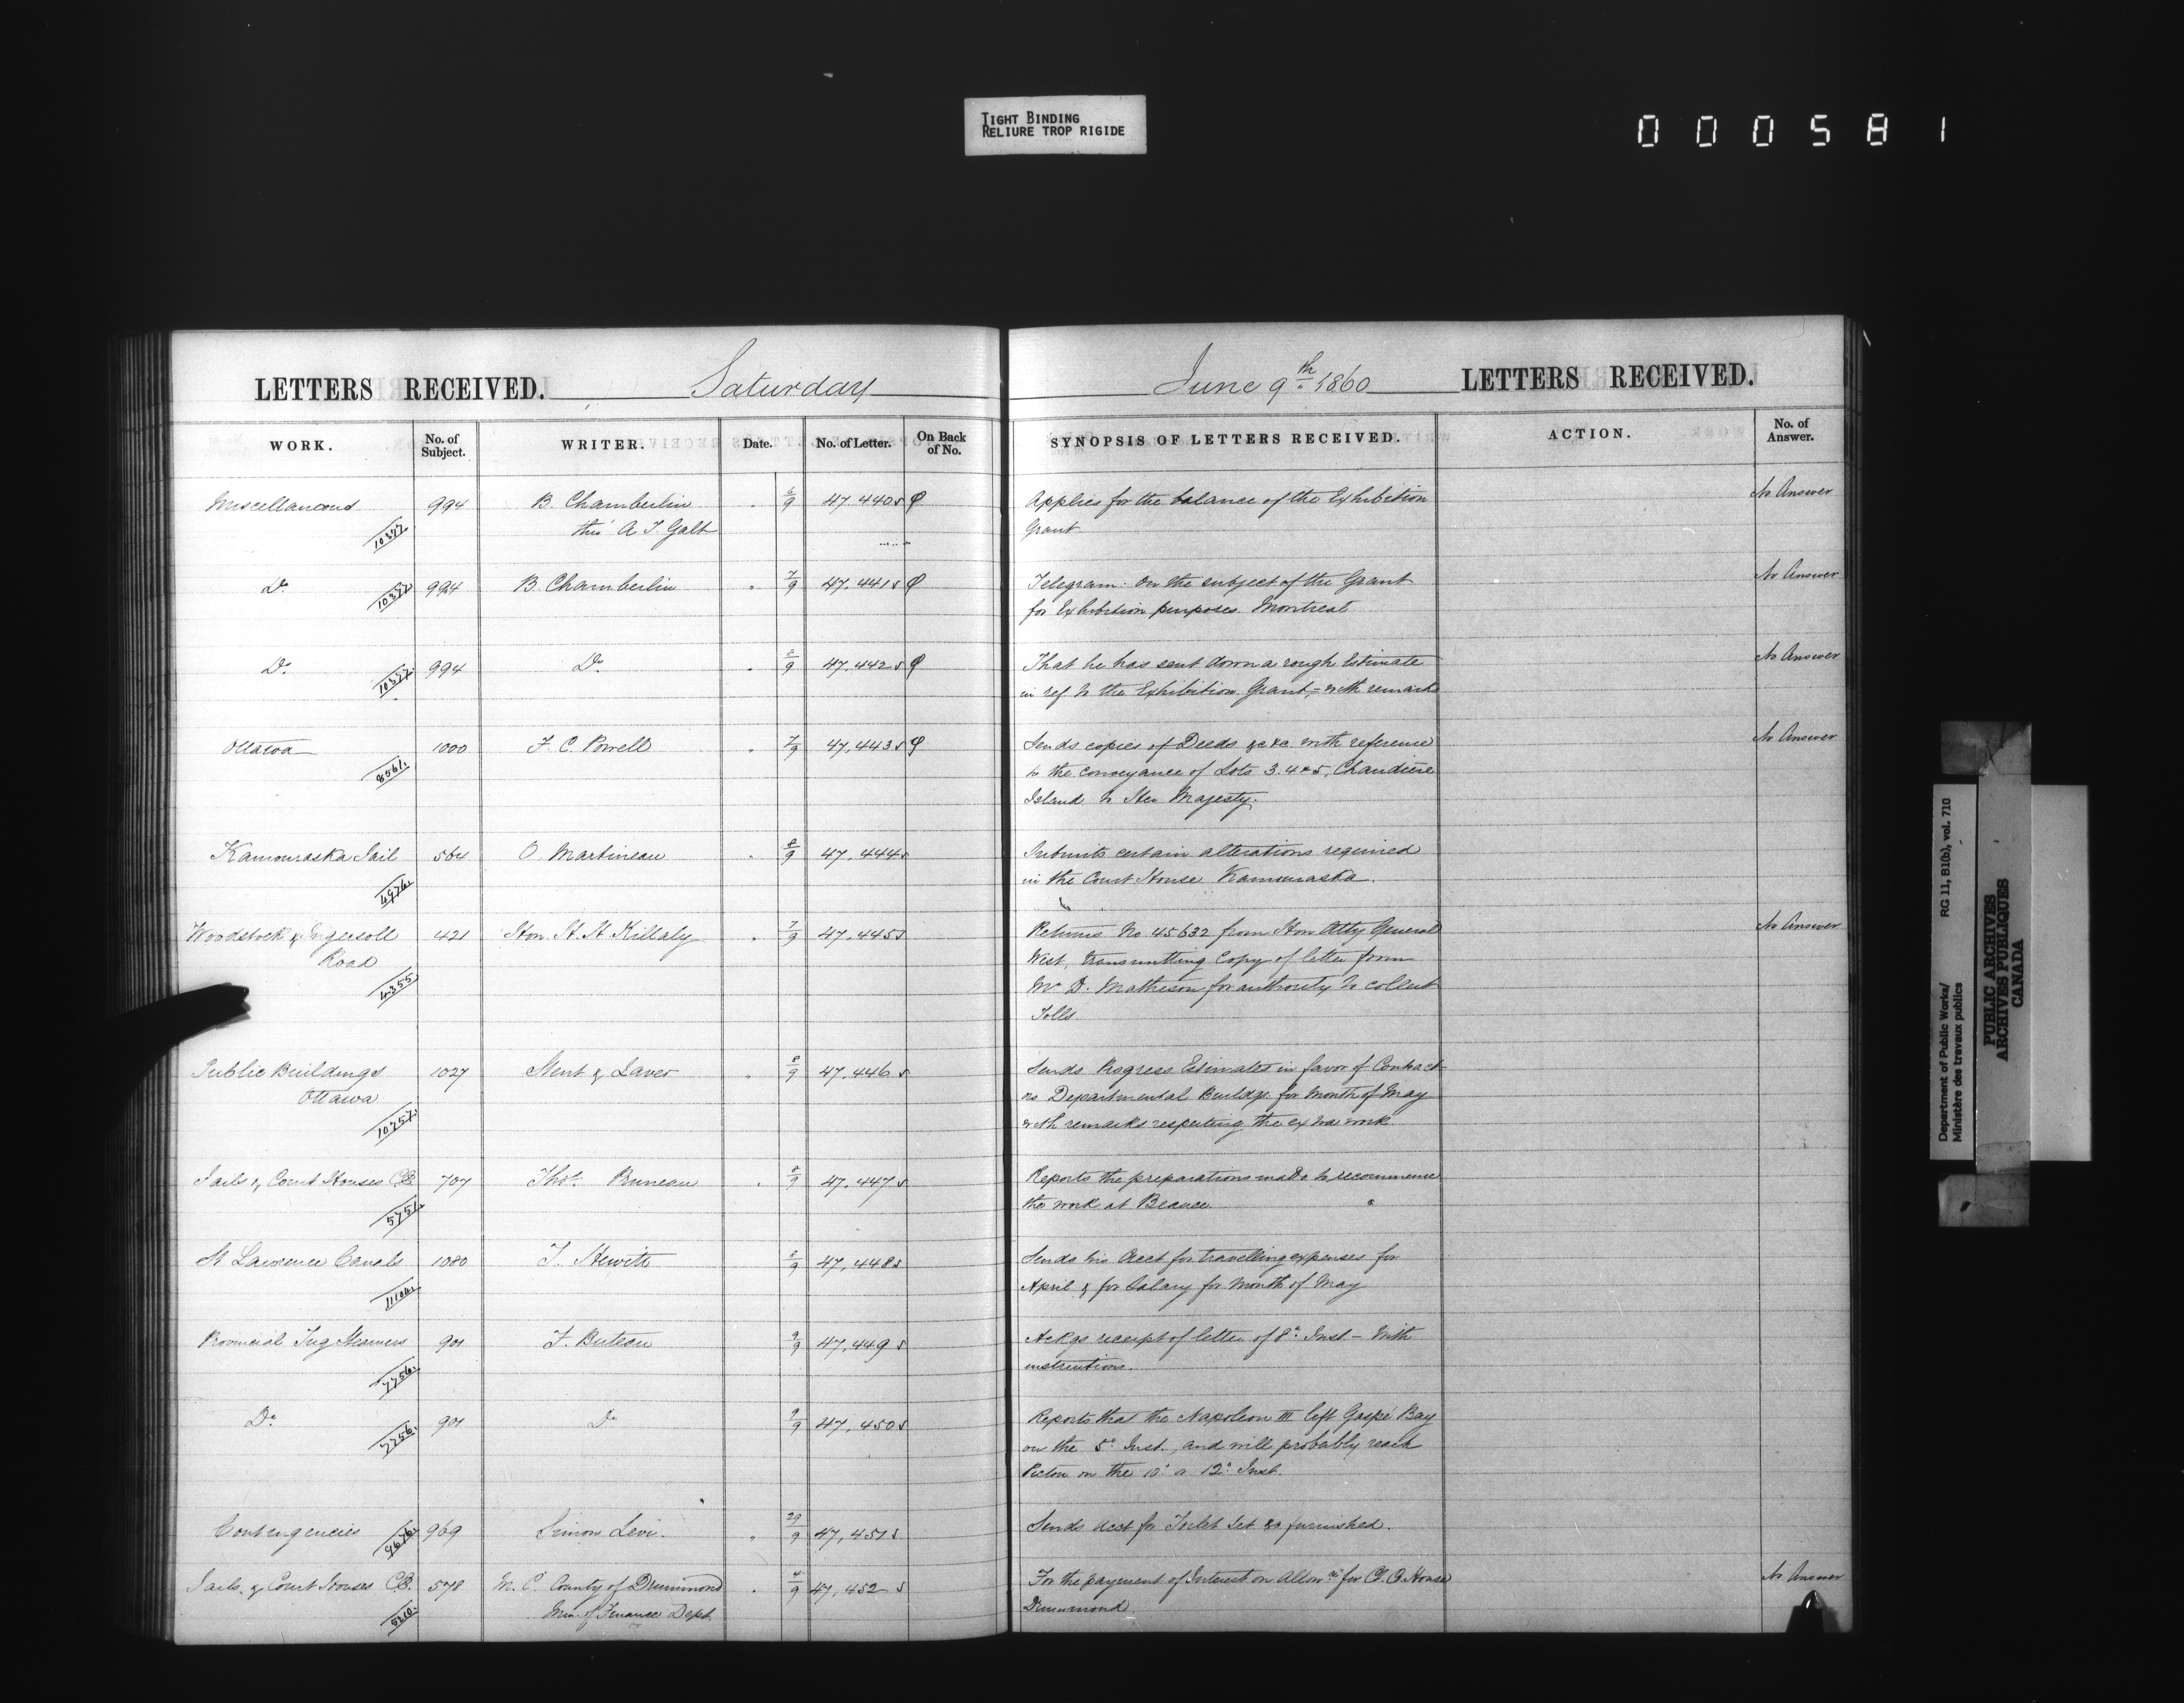 TIGHT BINDING
RELIURE TROP RIGIDE
000581
LETTERS RECEIVED. Saturday
WORK. No. of Subject. WRITER. Date. No. of Letter. On Back of No.
Miscellaneous 994 B. Chamberlin 6/9 47.440
10377 thro' A. T. Galt
Do 994 B. Chamberlin 7/9 47.441
Do 994 Do 8/9 47.442
Ottawa 1000 F. C. Powell 7/9 47,443
8561
Kamouraska Jail 564 O. Martineau 8/9 47.444
4976
Woodstock & Ingersoll 421 Hon. H. H. Killaly 7/9 47.445
Road
4355
Public Buildings 1027 Stent & Laver 8/9 47.446
Ottawa
10757
Jails & Court Houses C.E. 707 Thos. Bruneau 8/9 47.447
5751
St Lawrence Canals 1080 T. Hewitt 8/9 47,448
11104
Provincial Tug Steamers 901 F. Buteau 9/9 47,449
7756
Do 901 Do 9/9 47,450
7756
Contingencies 969 Simon Levi. 29/9 47,451
9676
Jails & Court Houses C.E. 578 M. C. County of Drummond 4/9 47,452
5210 Min. of Finance Dept.
June 9th 1860 LETTERS RECEIVED.
SYNOPSIS OF LETTERS RECEIVED. ACTION. No. of Answer.
Applies for the balance of the Exhibition No Answer
Grant
Telegram: On the subject of the Grant No Answer
for Exhibition purposes Montreal
That he has sent down a rough Estimate No Answer
in ref. to the Exhibition Grant,- with remarks
Sends copies of Deeds &c &c with reference No Answer
to the conveyance of Lots 3. 4 & 5, Chaudiere
Island to Her Majesty.
Submits certain alterations required
in the Court House Kamouraska.
Returns No 45632 from Hon Atty General No Answer
West, transmitting Copy of letter from
Mr. D. Matheson for authority to collect
Tolls
Sends Progress Estimates in favor of Contract
ors Departmental Buildgs. for Month of May
with remarks respecting the extra work
Reports the preparations made to recommence
the work at Beauce.
Sends his Acct for travelling expenses for
April & for Salary for Month of May
Ackgs receipt of letter of 8th Inst - With
instructions.
Reports that the Napoleon III left Gaspé Bay
on the 5th Inst., and will probably reach
Pictou on the 10th or 12th Inst.
Sends Acct for Toilet Set &c furnished.
For the payment of Interest on Allowce for Ct. House No Answer
Drummond.
Department of Public Works/ RG 11, B1(b), vol. 710
Ministère des travaux publics
PUBLIC ARCHIVES
ARCHIVES PUBLIQUES
CANADA